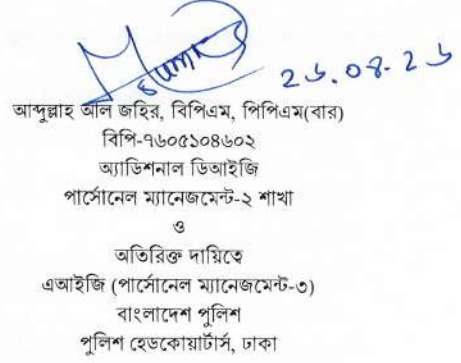 ২৬.০৪.২৬
আব্দুল্লাহ আল জহির, বিপিএম, পিপিএম(বার)
বিপি-৭৬০৫১০৪৬০২
অ্যাডিশনাল ডিআইজি
পার্সোনেল ম্যানেজমেন্ট-২ শাখা
ও
অতিরিক্ত দায়িত্বে
এআইজি (পার্সোনেল ম্যানেজমেন্ট-৩)
বাংলাদেশ পুলিশ
পুলিশ হেডকোয়ার্টার্স, ঢাকা